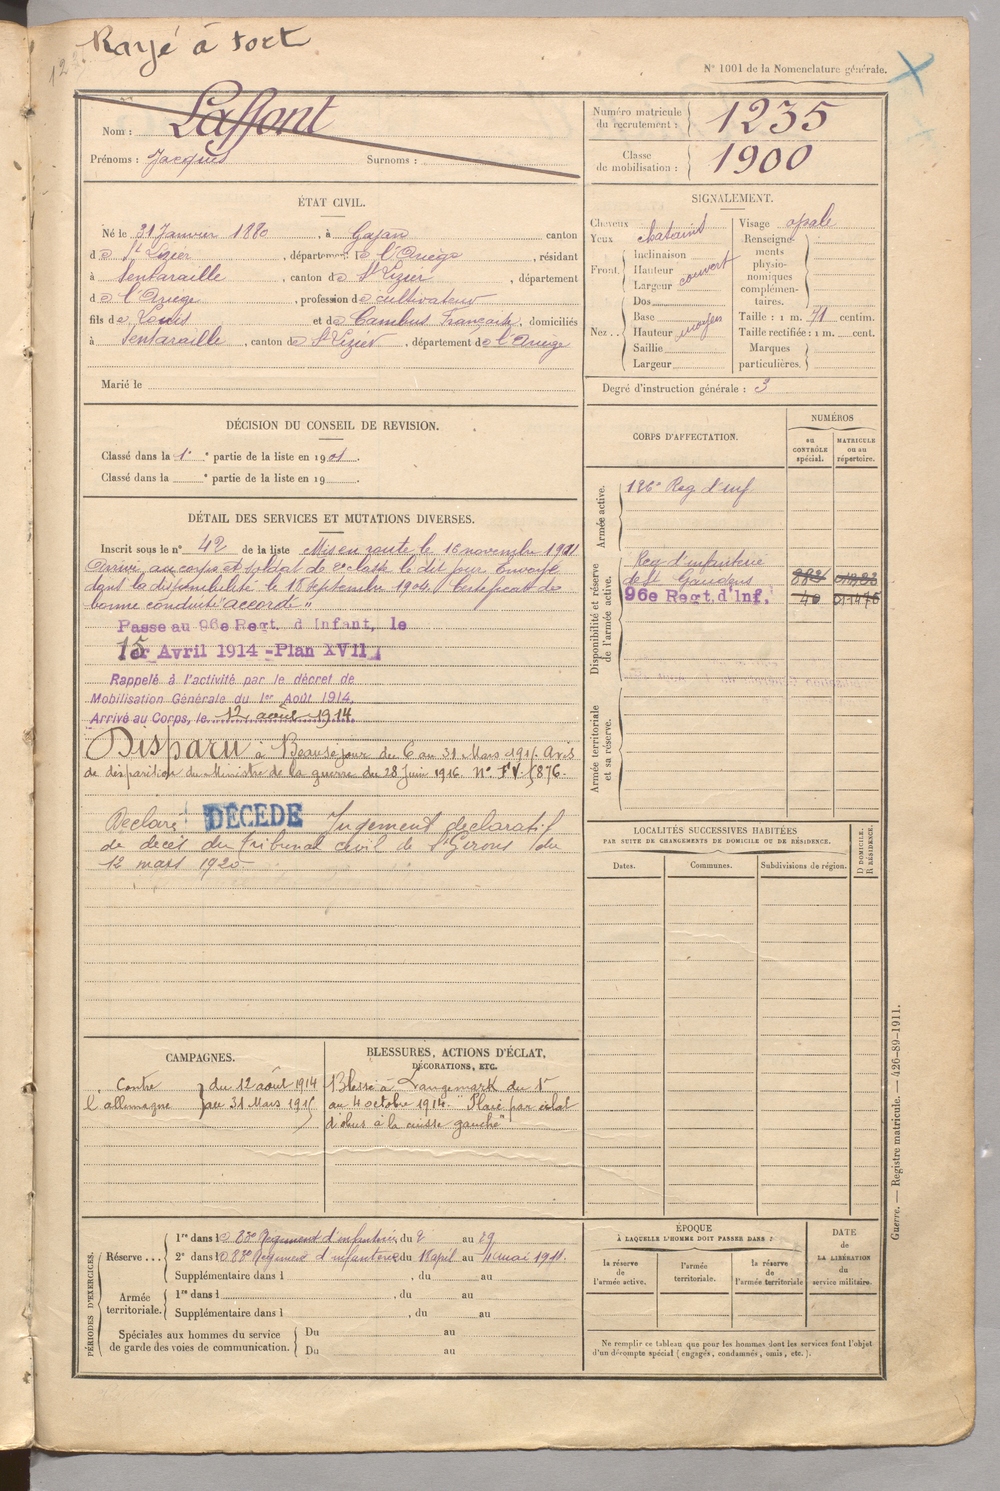 Rayé à tort
N° 1001 de la Nomenclature générale.
Nom : Laffont
Prénoms : Jacques Surnoms :
Numéro matricule du recrutement : 1235
Classe de mobilisation : 1900
ÉTAT CIVIL.
Né le 31 Janvier 1880, à Gajan canton
de St Lizier, département de l'Ariège, résidant
à Sentaraille, canton de St Lizier, département
de l'Ariège, profession de cultivateur
fils de Louis et de Cambus Françoise, domiciliés
à Sentaraille, canton de St Lizier, département de l'Ariège
Marié le
SIGNALEMENT.
Cheveux chatains
Yeux
Front. Inclinaison
Hauteur couvert
Largeur
Nez.. Dos
Base
Hauteur moyen
Saillie
Largeur
Visage opale
Renseignements physionomiques complémentaires.
Taille : 1 m. 71 centim.
Taille rectifiée : 1 m. cent.
Marques particulières.
Degré d'instruction générale : 3
DÉCISION DU CONSEIL DE REVISION.
Classé dans la 1e partie de la liste en 1901.
Classé dans la ° partie de la liste en 19 .
DÉTAIL DES SERVICES ET MUTATIONS DIVERSES.
Inscrit sous le n° 42 de la liste Mis en route le 16 novembre 1901
Arrivé au corps et soldat de 2e classe le dit jour. Envoyé
dans la disponibilité le 18 septembre 1904. Certificat de
bonne conduite "accordé"
Passé au 96e Regt. d'Infant. le
15 Avril 1914 - Plan XVII
Rappelé à l'activité par le décret de
Mobilisation Générale du 1er Août 1914.
Arrivé au Corps, le 12 août 1914.
Disparu à Beauséjour du 6 au 31 Mars 1915 Avis
de disparition du Ministre de la guerre du 28 Juin 1916. N° FV. 5876.
Déclaré DÉCÉDÉ Jugement déclaratif
de décès du Tribunal civil de St Girons du
12 mars 1920
CORPS D'AFFECTATION.
NUMÉROS
au CONTRÔLE spécial.
MATRICULE ou au répertoire.
Armée active.
126e Reg d'Inf
Disponibilité et réserve de l'armée active.
Reg d'infanterie
de St Gaudens
96e Regt. d'Inf. 40
Armée territoriale et sa réserve.
LOCALITÉS SUCCESSIVES HABITÉES
PAR SUITE DE CHANGEMENTS DE DOMICILE OU DE RÉSIDENCE.
Dates. Communes. Subdivisions de région.
D DOMICILE.
R RÉSIDENCE.
CAMPAGNES.
Contre l'allemagne } du 12 août 1914
au 31 Mars 1915
BLESSURES, ACTIONS D'ÉCLAT,
DÉCORATIONS, ETC.
Blessé à Langemark du 1er
au 4 octobre 1914. "Plaie par éclat
d'obus à la cuisse gauche"
PÉRIODES D'EXERCICES.
Réserve...
1re dans le 83e Régiment d'infanterie, du 2 au 29
2e dans le 83e Régiment d'infanterie du 18 april au 4 mai 1911.
Supplémentaire dans l , du au
Armée territoriale.
1re dans l , du au
Supplémentaire dans l , du au
Spéciales aux hommes du service
de garde des voies de communication.
Du au
Du au
ÉPOQUE
À LAQUELLE L'HOMME DOIT PASSER DANS :
la réserve de l'armée active.
l'armée territoriale.
la réserve de l'armée territoriale
DATE de LA LIBÉRATION du service militaire.
Ne remplir ce tableau que pour les hommes dont les services font l'objet
d'un décompte spécial (engagés, condamnés, omis, etc.).
Guerre. — Registre matricule. — 426-89-1911.